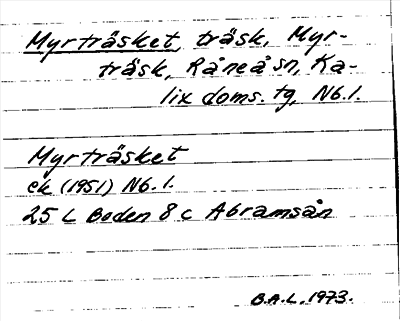 Myrträsket, träsk, Myr-
träsk, Råneå sn, Ka-
lix doms. tg, Nb.l.
Myrträsket
ek (1951) Nb.l.
25 L Boden 8 c Abramsån
B.A.L. 1973.